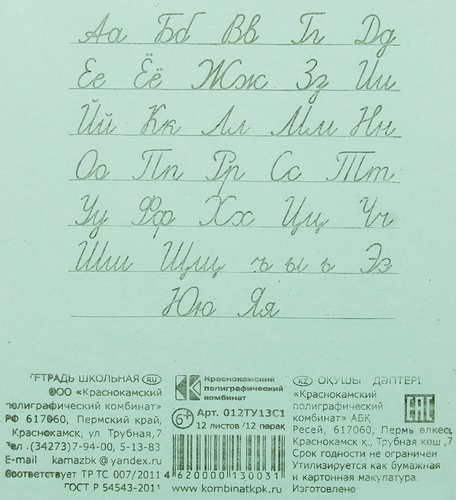 Аа Бб Вв Гг Дд
Ее Ёё Жж Зз Ии
Йй Кк Лл Мм Нн
Оо Пп Рр Сс Тт
Уу Фф Хх Цц Чч
Шш Щщ ъ ы ь Ээ
Юю Яя
ТЕТРАДЬ ШКОЛЬНАЯ RU
ООО «Краснокамский
полиграфический комбинат»
РФ 617060, Пермский край,
Краснокамск, ул Трубная,7
Тел.(34273)7-94-00, 5-13-83
E-mail kamazbk @ yandex.ru
Соответствует ТР ТС 007/2011
ГОСТ Р 54543-2011
Краснокамский
полиграфический
комбинат
6+ Арт. 012ТУ13С1
12 листов /12 парақ
4 620000 130031
www.kombinatkpk.ru
KZ ОҚУШЫ ДӘПТЕРІ
«Краснокамский
полиграфический
комбинат» АБҚ
Ресей, 617060, Пермь өлкесі,
Краснокамск қ., Трубная көш.,7
Срок годности не ограничен
Утилизируется как бумажная
и картонная макулатура.
Изготовлено
EAC